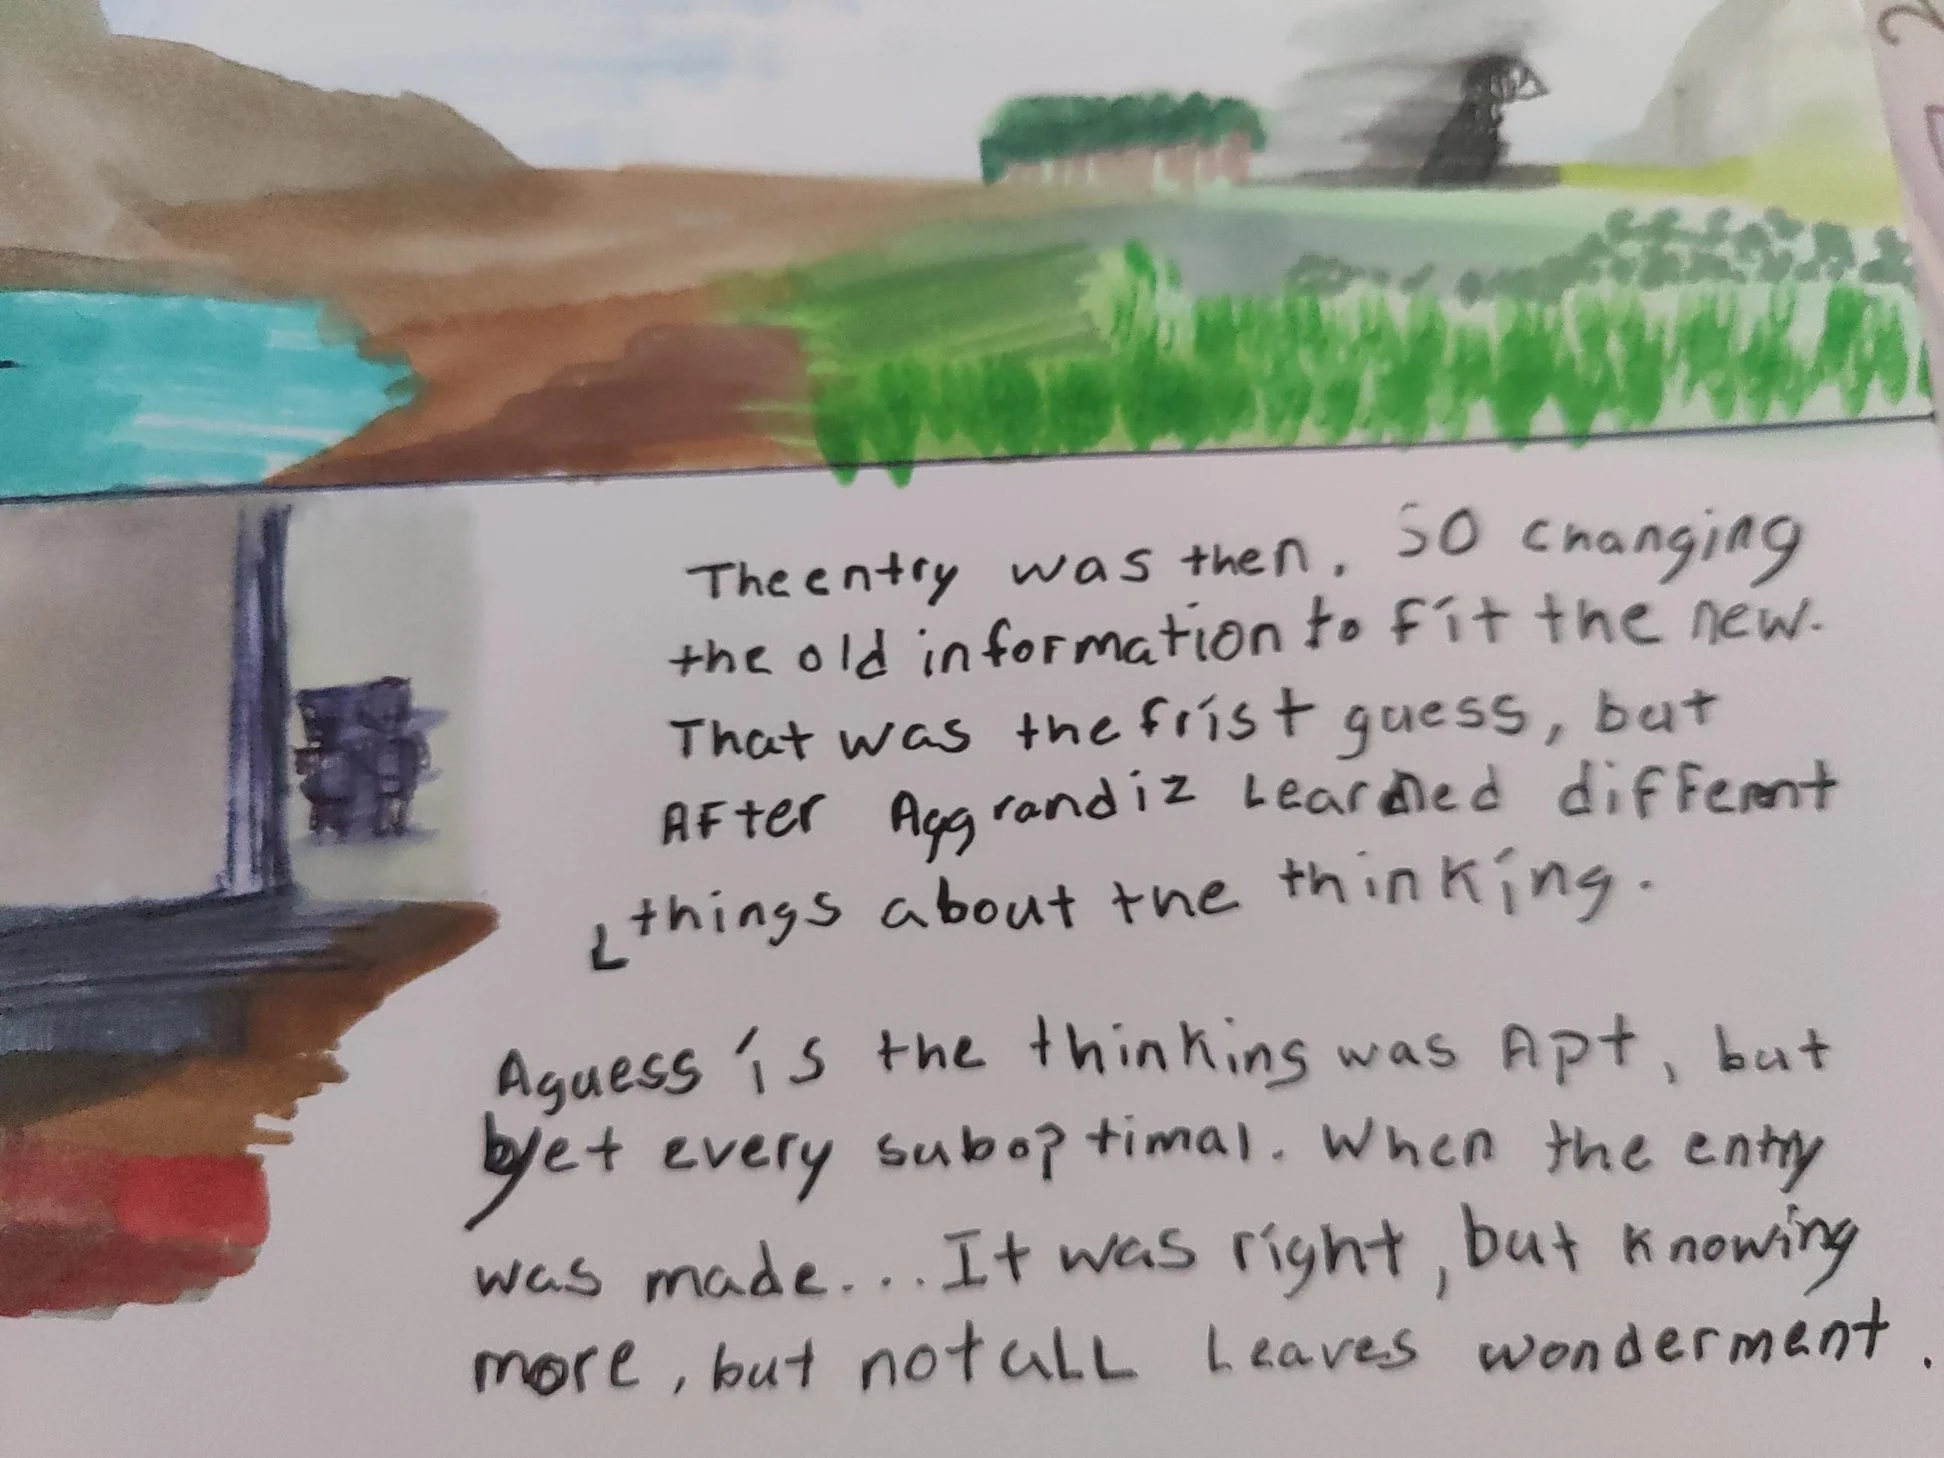 The entry was then. So changing
the old information to fit the new.
That was the frist guess, but
After Aggrandiz Learned different
things about the thinking.
A guess is the thinking was Apt, but
yet every suboptimal. When the entry
was made... It was right, but knowing
more, but not all Leaves wonderment.